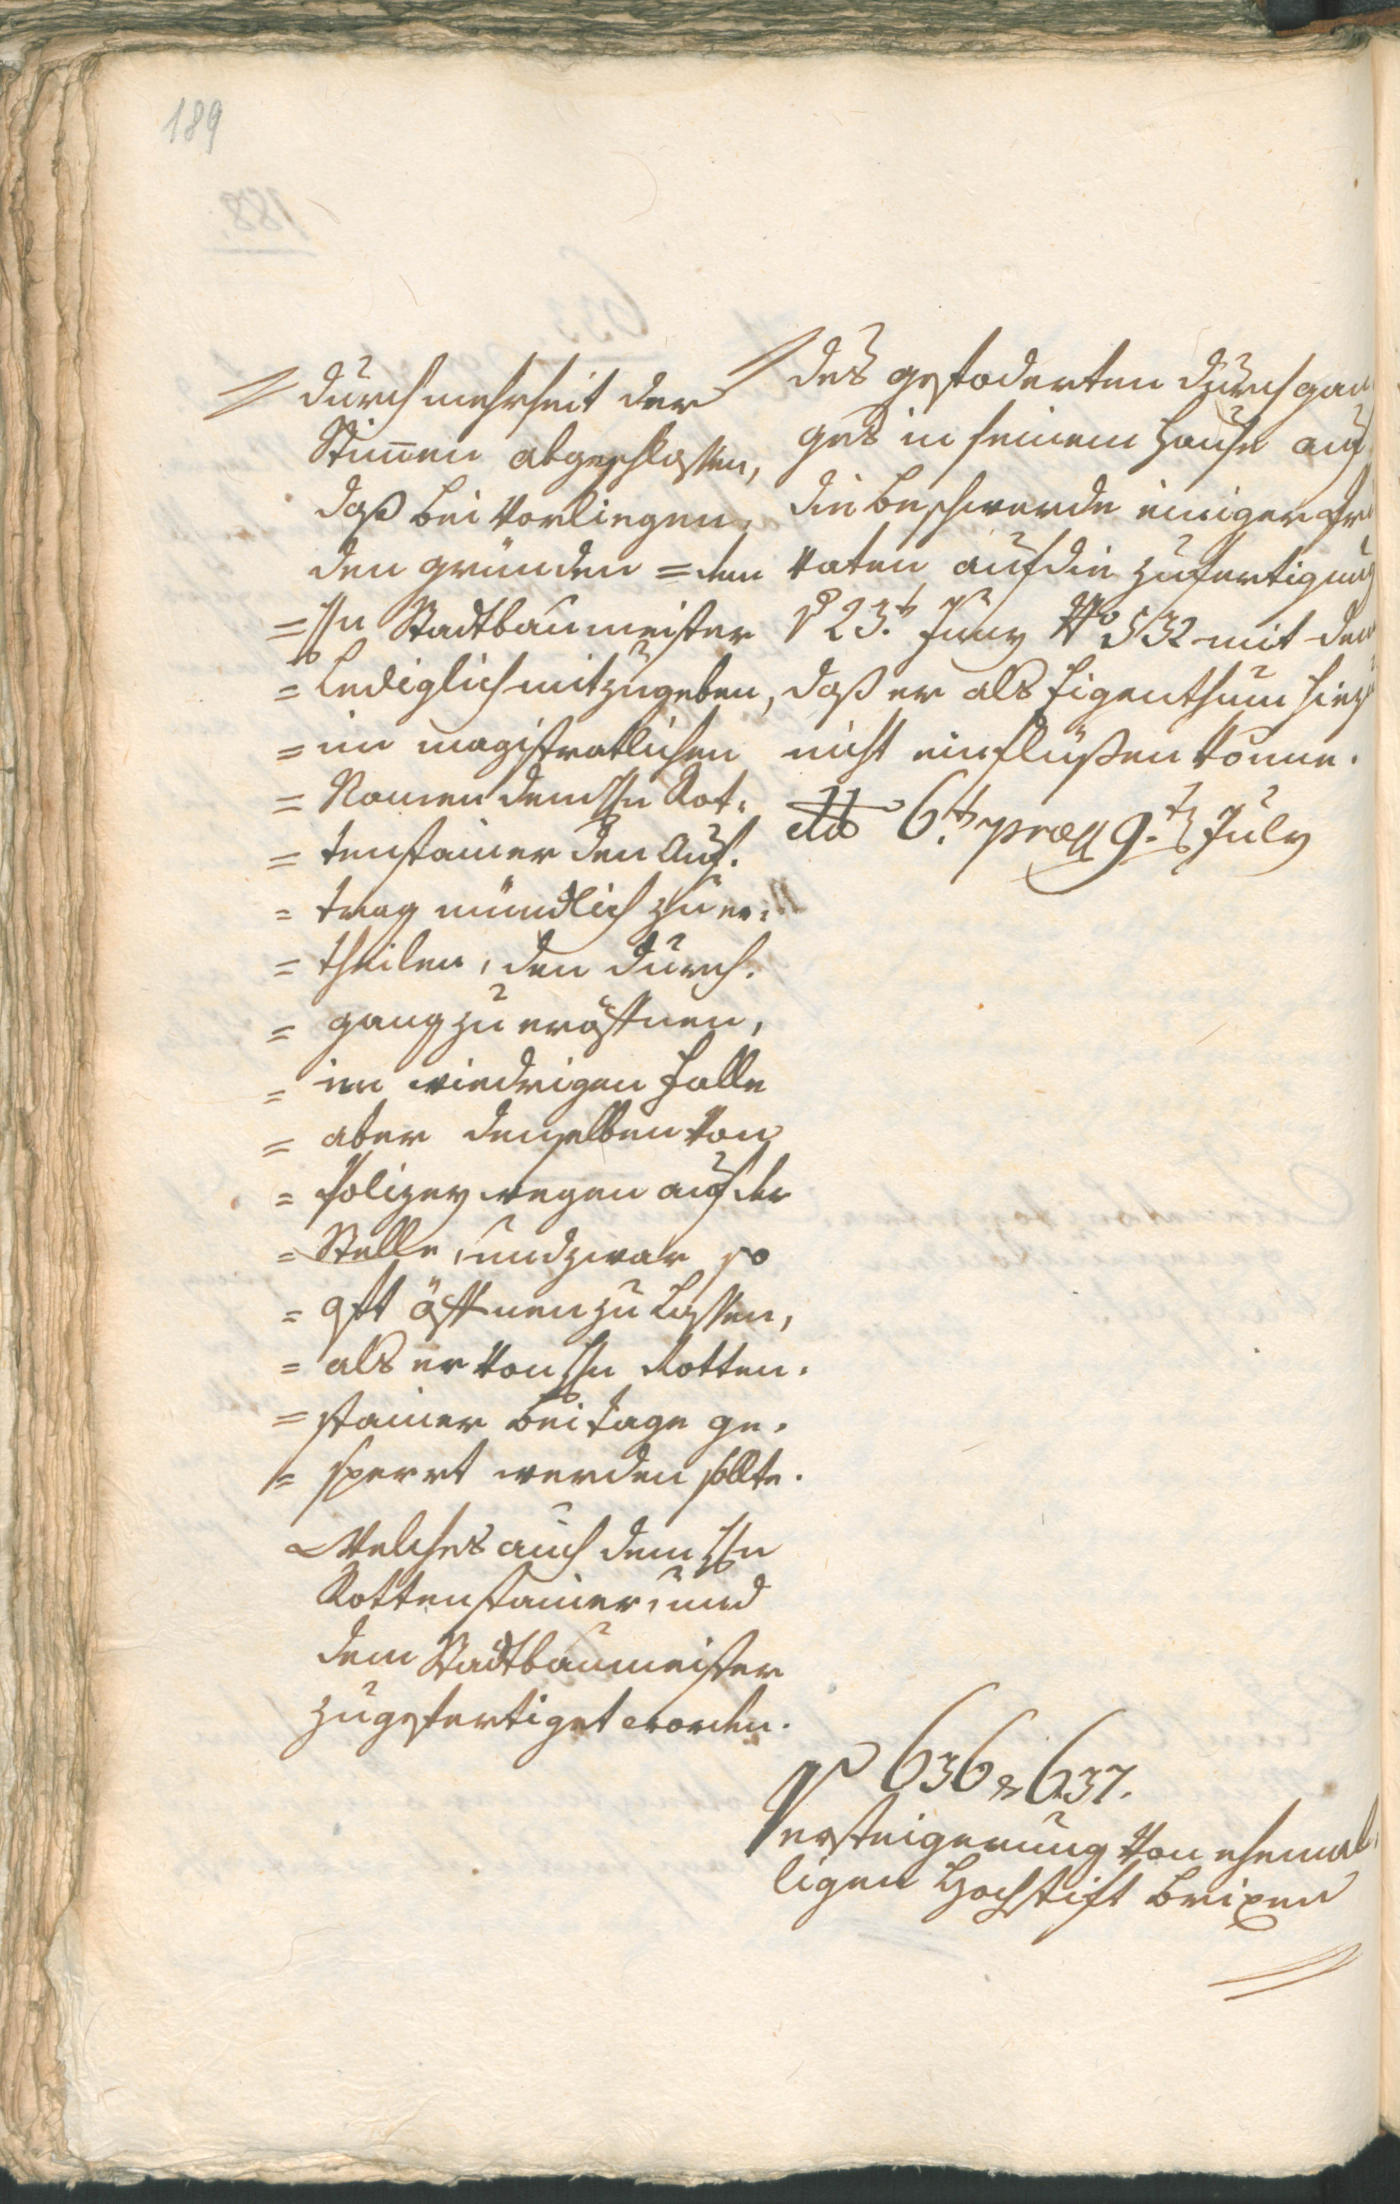 189
durch mehrheit der
Stim̅en abgeschlossen,
daß bei vorliegen,
den gründen = dem
= Hn Stadtbaumeister
= lediglich mitzugeben,
= im magistratlichen
= Namen dem Hn Rot,
= tenstainer den Auf.
= trag mündlich zu er,
= theilen, den durch.
= gang zu eröffnen,
= im wiedrigen Falle
= aber denselben von
= Polizey wegen auf der
= Stelle, und zwar so
= oft öffnen zu lassen,
= als er von Hn Rotten.
= stainer bei tage ge.
= sperrt werden sollte.
Welches auch dem Hn
Rottenstainer, und
dem Stadtbaumeister
zugefertiget worden.
des gefoderten durchgan
ges in seinem Hause auf
die beschwerde einiger Pri
vaten auf die Zufertigung
23.t Juny No 532 mit dem
daß er als Eigenthum hiezu
nicht einflüßen könne.
dto 6.t præs 9.t July
No 636 & 637.
Versteigerung von ehemal,
ligen Hochstift Brixen